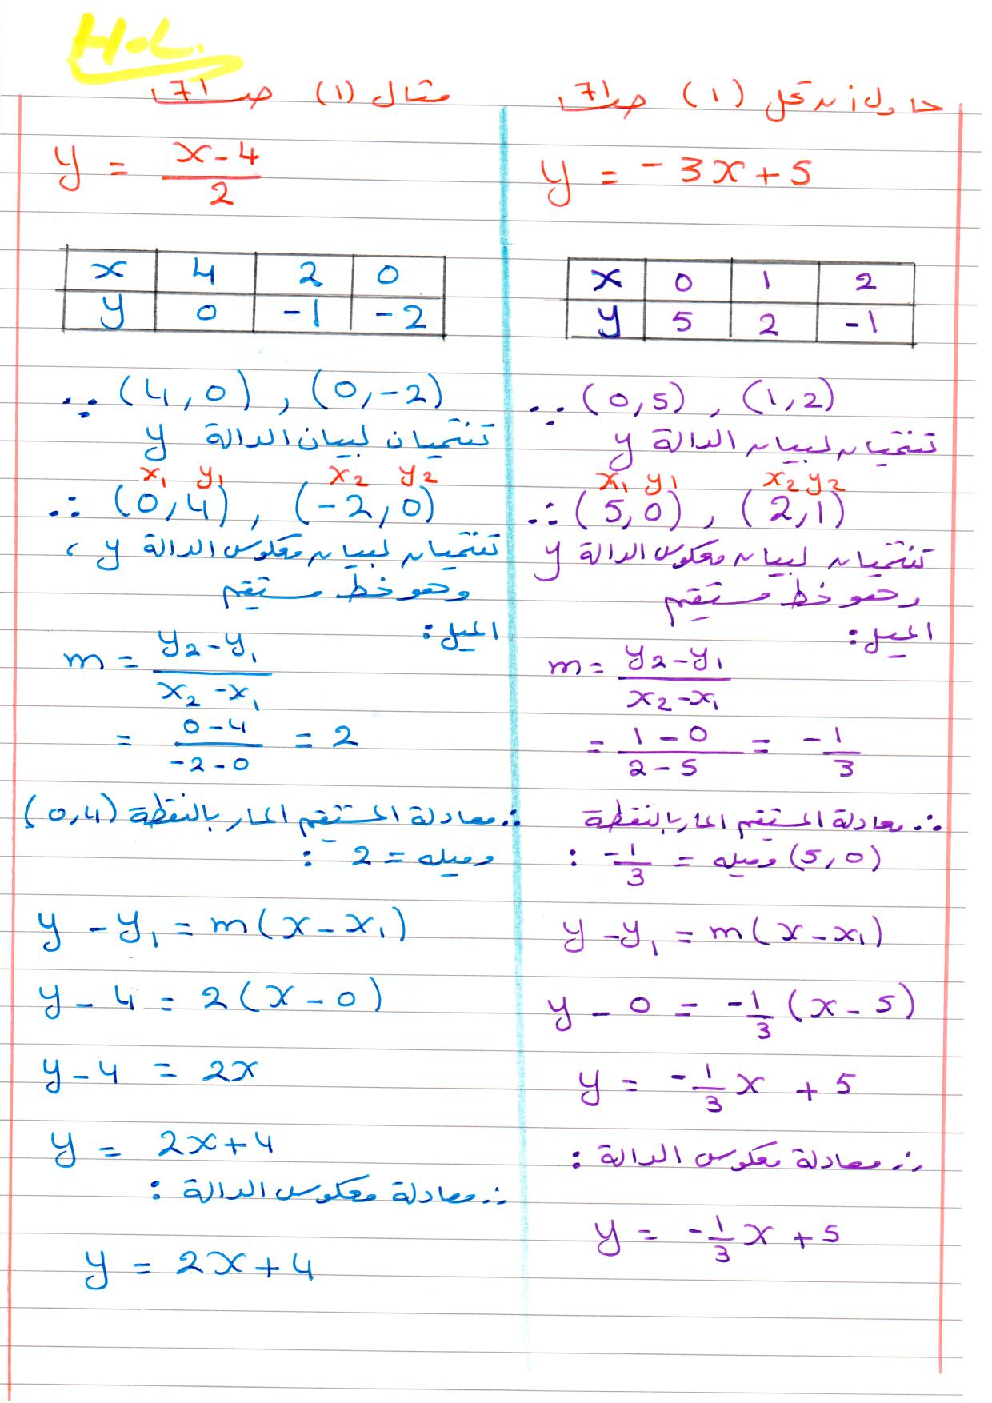 H.L.
حاول أن تحل (1) صـ 71
y = -3x + 5
x 0 1 2
y 5 2 -1
∴ (0,5) , (1,2)
تنتميان لبيان الدالة y
x₁ y₁ x₂ y₂
∴ (5,0) , (2,1)
تنتميان لبيان معكوس الدالة y
وهو خط مستقيم
الميل:
m = \frac{y₂-y₁}{x₂-x₁}
= \frac{1-0}{2-5} = -\frac{1}{3}
∴ معادلة المستقيم المار بالنقطة
(5,0) وميله = -\frac{1}{3} :
y - y₁ = m(x - x₁)
y - 0 = -\frac{1}{3} (x - 5)
y = -\frac{1}{3} x + 5
∴ معادلة معكوس الدالة :
y = -\frac{1}{3} x + 5
مثال (1) صـ 71
y = \frac{x-4}{2}
x 4 2 0
y 0 -1 -2
∴ (4,0) , (0,-2)
تنتميان لبيان الدالة y
x₁ y₁ x₂ y₂
∴ (0,4) , (-2,0)
تنتميان لبيان معكوس الدالة y ،
وهو خط مستقيم
الميل:
m = \frac{y₂-y₁}{x₂-x₁}
= \frac{0-4}{-2-0} = 2
∴ معادلة المستقيم المار بالنقطة (0,4)
وميله = 2 :
y - y₁ = m(x - x₁)
y - 4 = 2(x - 0)
y - 4 = 2x
y = 2x + 4
∴ معادلة معكوس الدالة :
y = 2x + 4